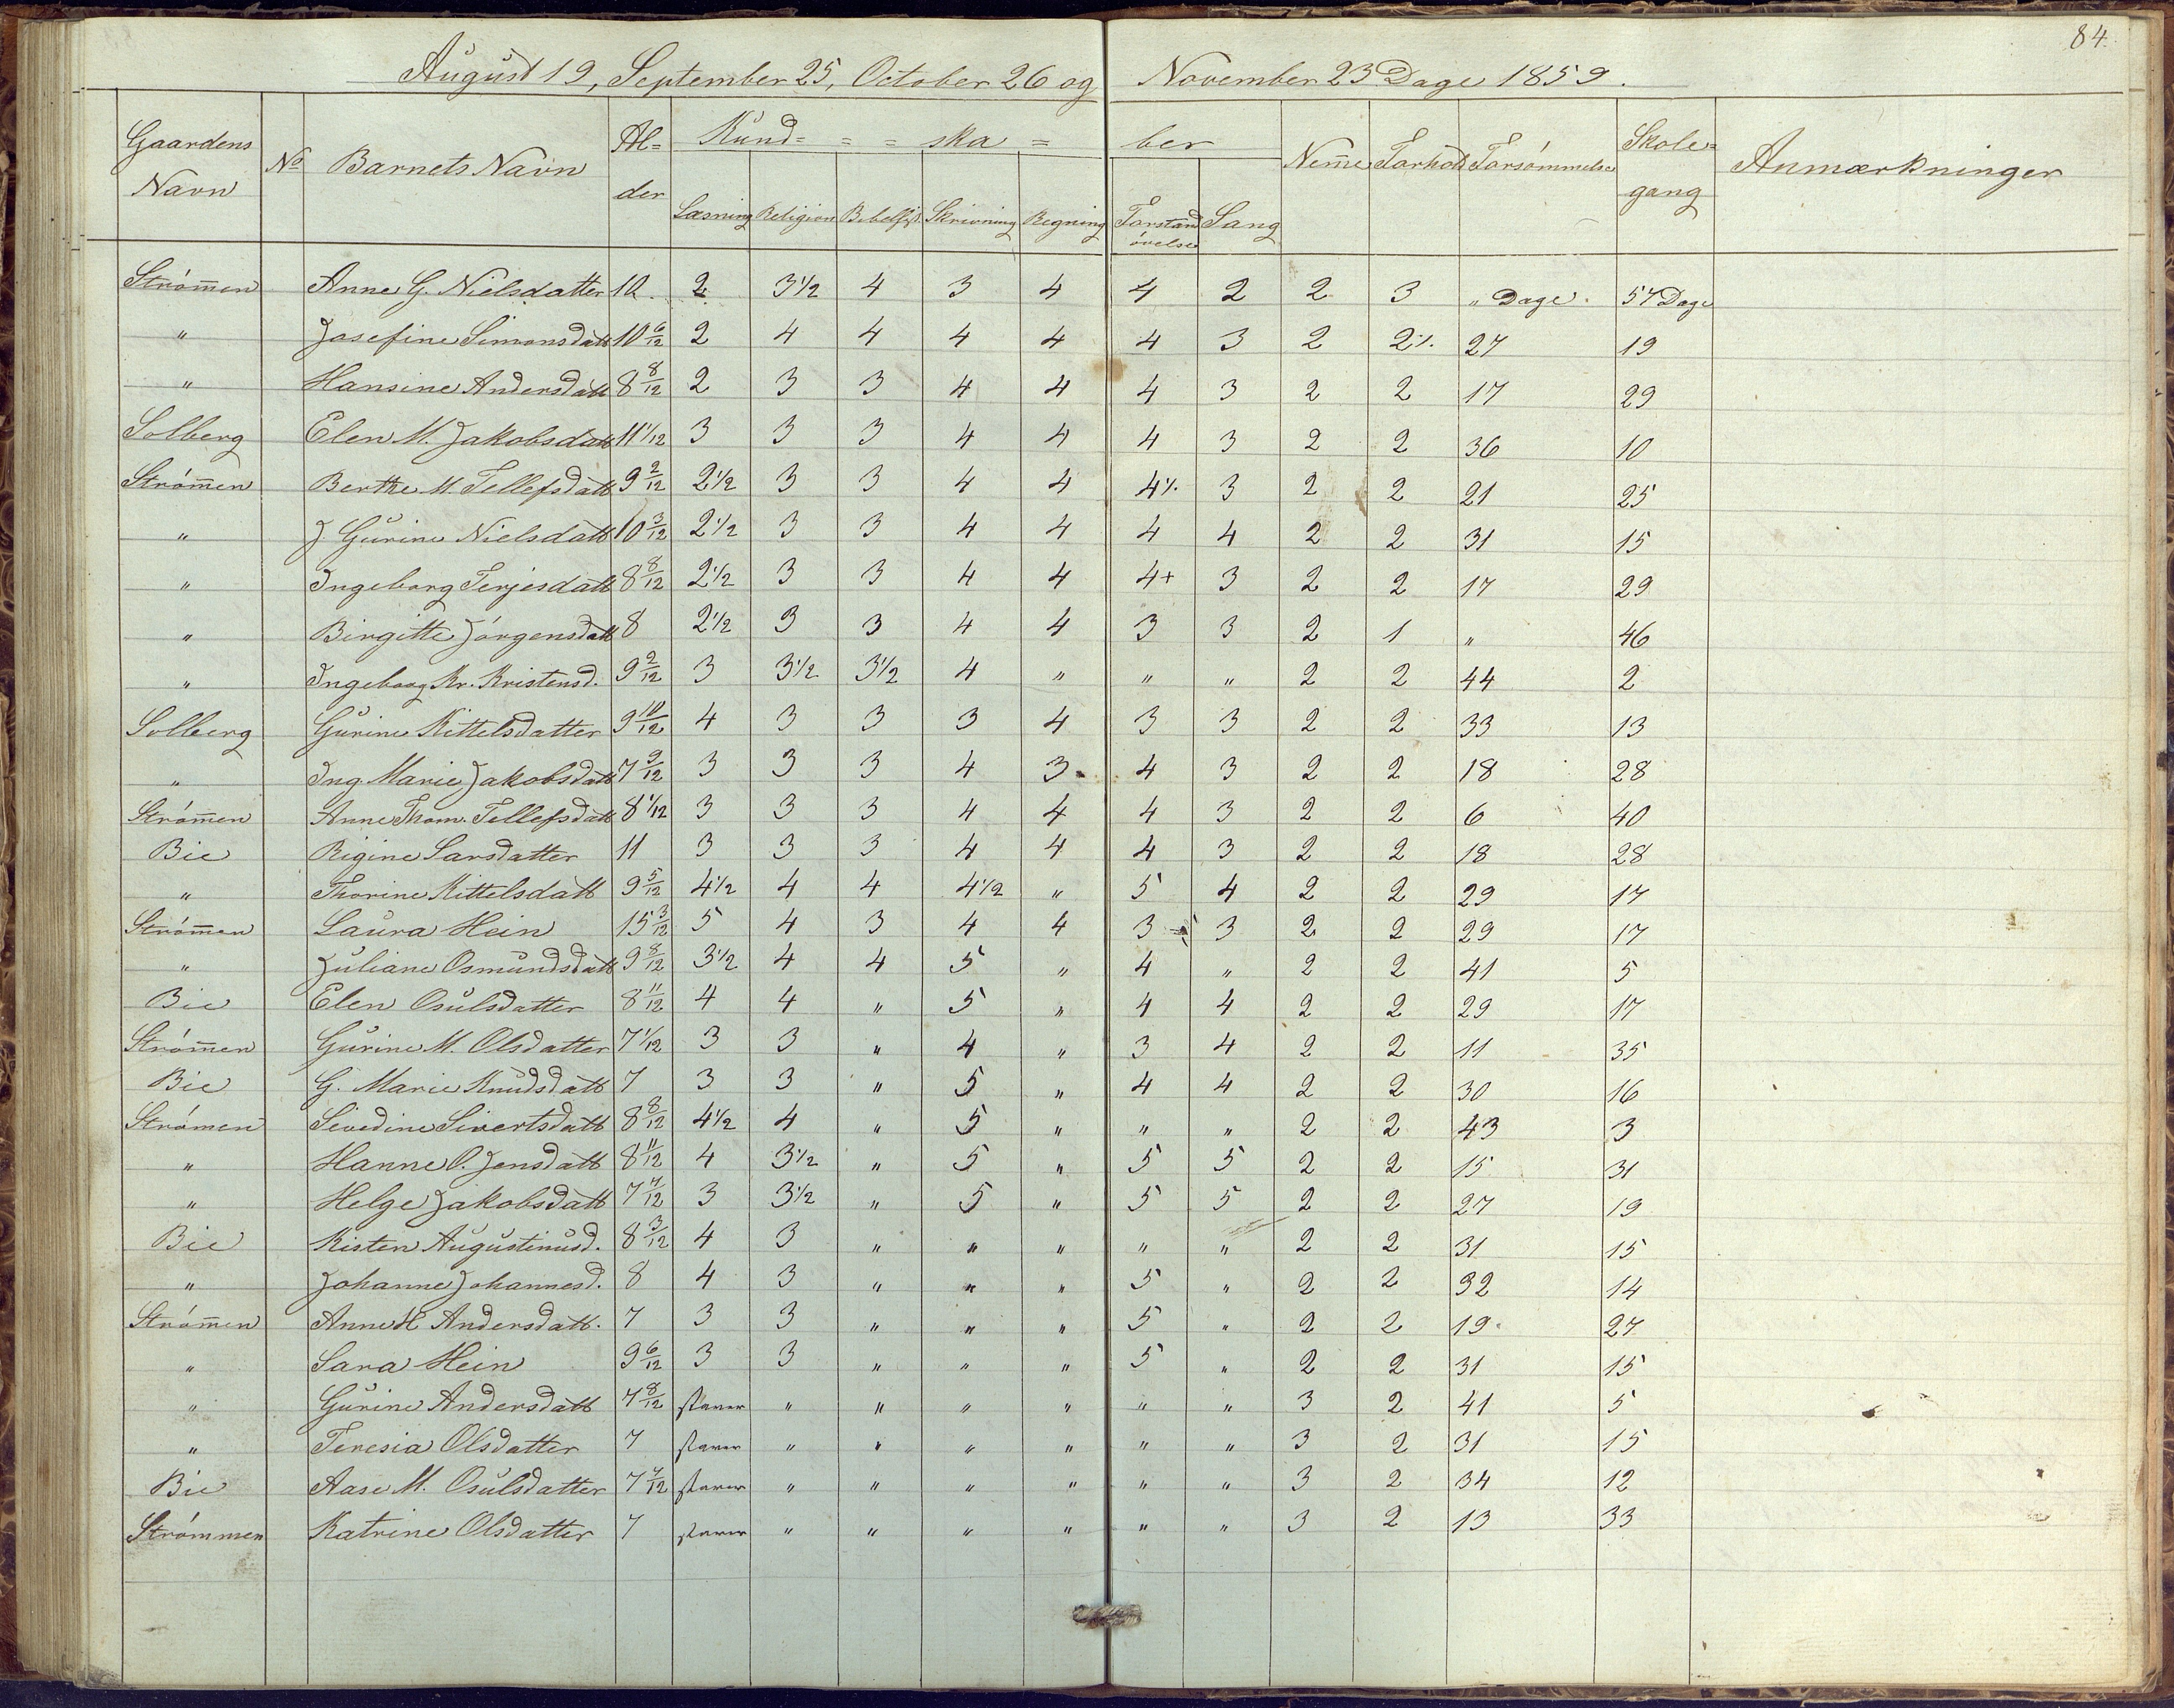 84.
August 19, September 25, October 26 og November 23 Dage 1859.
Gaardens Navn No Barnets Navn Al-der Kund= = = ska = ber Nem̅e Forhold Forsømmelse Skole-gang Anmærkninger
Læsning Religion Bibelhist. Skrivning Regning Forstands øvelse Sang
Strøm̅en Anne G. Nielsdatter 10. 2 3 1/2 4 3 4 4 2 2 3 " Dage. 57 Dage
" Josefine Simonsdatt 10 6/12 2 4 4 4 4 4 3 2 2 ⁒ 27 19
" Hansine Andersdatt 8 8/12 2 3 3 4 4 4 3 2 2 17 29
Solberg Elen M. Jakobsdatt 11 1/12 3 3 3 4 4 4 3 2 2 36 10
Strøm̅en Berthe M. Tellefsdatt 9 2/12 2 1/2 3 3 4 4 4 ⁒ 3 2 2 21 25
" J. Gurine Nielsdatt 10 3/12 2 1/2 3 3 4 4 4 4 2 2 31 15
" Ingeborg Terjesdatt 8 8/12 2 1/2 3 3 4 4 4+ 3 2 2 17 29
" Birgitte Jørgensdatt 8 2 1/2 3 3 4 4 3 3 2 1 " 46
" Ingeborg Kr. Kristensd. 9 2/12 3 3 1/2 3 1/2 4 " " " 2 2 44 2
Solberg Gurine Kittelsdatter 9 10/12 4 3 3 3 4 3 3 2 2 33 13
" Ing. Marie Jakobsdatt 7 9/12 3 3 3 4 3 4 3 2 2 18 28
Strøm̅en Anne Thom. Tellefsdatt 8 1/12 3 3 3 4 4 4 3 2 2 6 40
Bie Rigine Larsdatter 11 3 3 3 4 4 4 3 2 2 18 28
" Thorine Kittelsdatt 9 5/12 4 1/2 4 4 4 1/2 " 5 4 2 2 29 17
Strøm̅en Laura Hein 15 3/12 5 4 3 4 4 3 3 2 2 29 17
" Juliane Osmundsdatt 9 8/12 3 1/2 4 4 5 " 4 " 2 2 41 5
Bie Elen Osulsdatter 8 11/12 4 4 " 5 " 4 4 2 2 29 17
Strøm̅en Gurine M. Olsdatter 7 1/12 3 3 " 4 " 3 4 2 2 11 35
Bie G. Marie Knudsdatt 7 3 3 " 5 " 4 4 2 2 30 16
Strømen Sevedine Sivertsdatt 8 8/12 4 1/2 4 " 5 " " " 2 2 43 3
" Hanne O. Jensdatt 8 11/12 4 3 1/2 " 5 " 5 5 2 2 15 31
" Helge Jakobsdatt 7 7/12 3 3 1/2 " 5 " 5 5 2 2 27 19
Bie Kisten Augustinusd. 8 3/12 4 3 " " " " " 2 2 31 15
" Johanne Johannesd. 8 4 3 " " " 5 " 2 2 32 14
Strøm̅en Anne H Andersdatt. 7 3 3 " " " 5 " 2 2 19 27
" Sara Hein 9 6/12 3 3 " " " 5 " 2 2 31 15
" Gurine Andersdatt 7 8/12 staver " " " " " " 3 2 41 5
" Teresia Olsdatter 7 staver " " " " " " 3 2 31 15
Bie Aase M. Osulsdatter 7 7/12 staver " " " " " " 3 2 34 12
Strømmen Katrine Olsdatter 7 staver " " " " " " 3 2 13 33